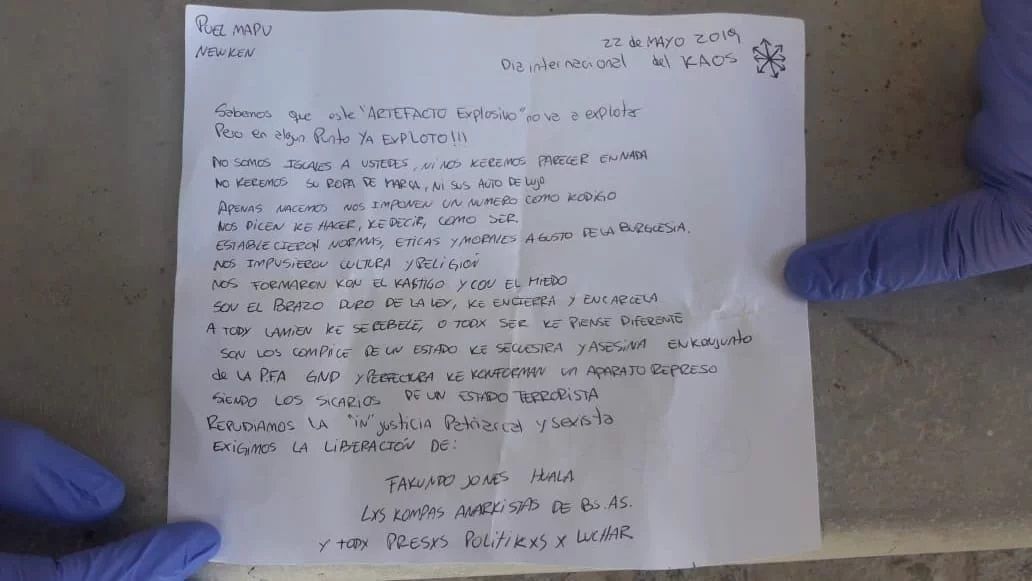 PUEL MAPU
NEWKEN
22 de MAYO 2019
Dia internacional del KAOS
Sabemos que este "ARTEFACTO Explosivo" no va a explotar
Pero en algun Punto YA EXPLOTO!!!
NO SOMOS IGUALES A USTEDES, NI NOS KEREMOS PARECER EN NADA
NO KEREMOS SU ROPA DE MARCA, NI SUS AUTO DE LUJO
APENAS NACEMOS NOS IMPONEN UN NUMERO COMO KODIGO
NOS DICEN KE HACER, KE DECIR, COMO SER.
ESTABLECIERON NORMAS, ETICAS Y MORALES A GUSTO DE LA BURGUESIA.
NOS IMPUSIERON CULTURA Y RELIGIÓN
NOS FORMARON KON EL KASTIGO Y CON EL MIEDO
SON EL BRAZO DURO DE LA LEY, KE ENCIERRA Y ENCARCELA
A TODX LAMIEN KE SE REBELE, O TODX SER KE PIENSE DIFERENTE
SON LOS COMPLICE DE UN ESTADO KE SECUESTRA Y ASESINA EN KONJUNTO
de LA P.FA GND Y PERFECTURA KE KONFORMAN UN APARATO REPRESO
SIENDO LOS SICARIOS DE UN ESTADO TERRORISTA
REPUDIAMOS LA "IN" justicia Patriarcal y sexista
EXIGIMOS LA LIBERACIÓN DE:
FAKUNDO JONES HUALA
LXS KOMPAS ANARKISTAS DE BS. AS.
Y TODX PRESXS POLITIKXS X LUCHAR